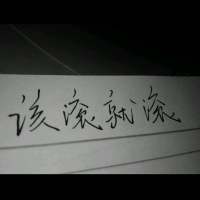 该滚就滚